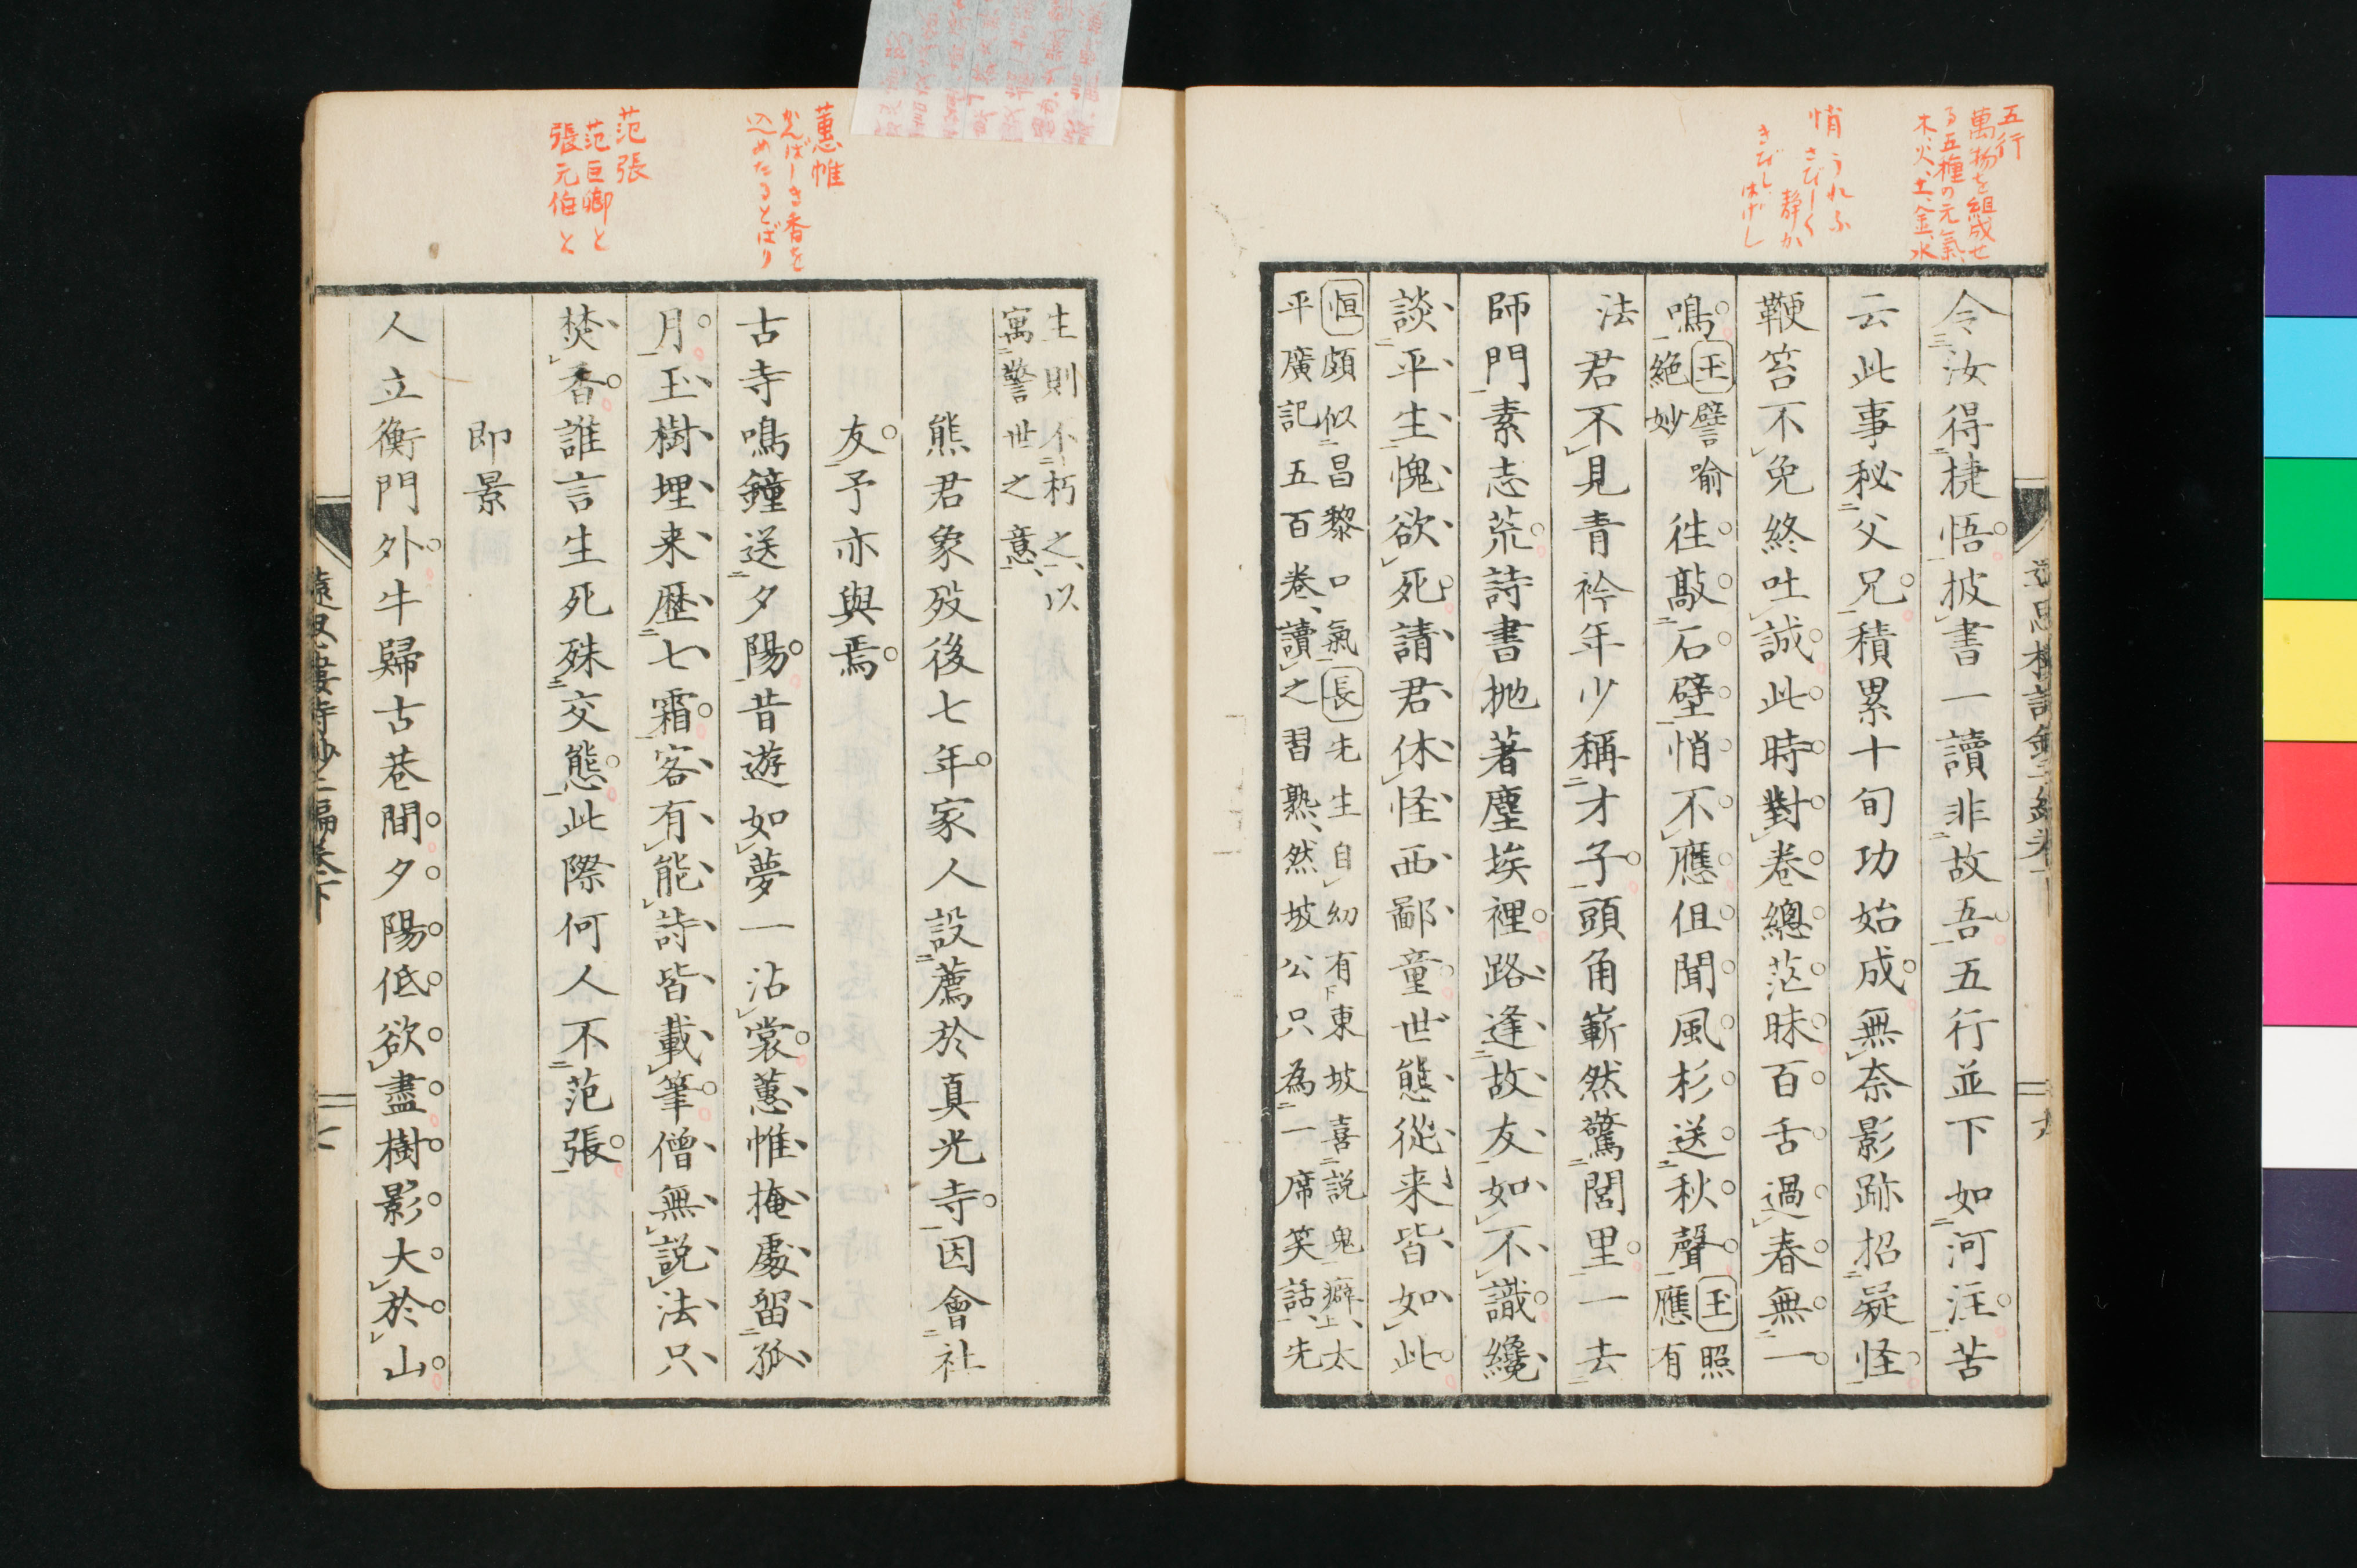 五行
萬物を組成せ
る五種の元氣、
木、火、土、金、水
悄 うれふ
さびしく
静か
きびし、はげし
令汝得捷悟披書一讀非故吾五行並下如河注苦
云此事秘父兄積累十旬功始成無奈影跡招疑怪
鞭笞不免終吐誠此時對卷總茫昧百舌過春無一
鳴 玉譬喻
絶妙
往敲石壁悄不應但聞風杉送秋聲 玉照
應有
法君不見青衿年少稱才子頭角嶄然驚閭里一去
師門素志荒詩書抛著塵埃裡路逢故友如不識纔
談平生愧欲死請君休怪西鄙童世態從来皆如此
恒頗似昌黎口氣 長先生自幼有東坡喜説鬼癖、太
平廣記五百卷、讀之習熟、然坡公只為一席笑話、先
生則不朽之、以
寓警世之意、
熊君象殁後七年家人設薦於真光寺因會社
友予亦與焉
古寺鳴鐘送夕陽昔遊如夢一沾裳蕙帷掩處留孤
月玉樹埋来歴七霜客有能詩皆載筆僧無説法只
焚香誰言生死殊交態此際何人不范張
即景
人立衡門外牛歸古巷間夕陽低欲盡樹影大於山
蕙帷
かんばしき香を
込めたるとばり
范張
范巨卿と
張元伯と
遠思樓詩鈔二編卷下